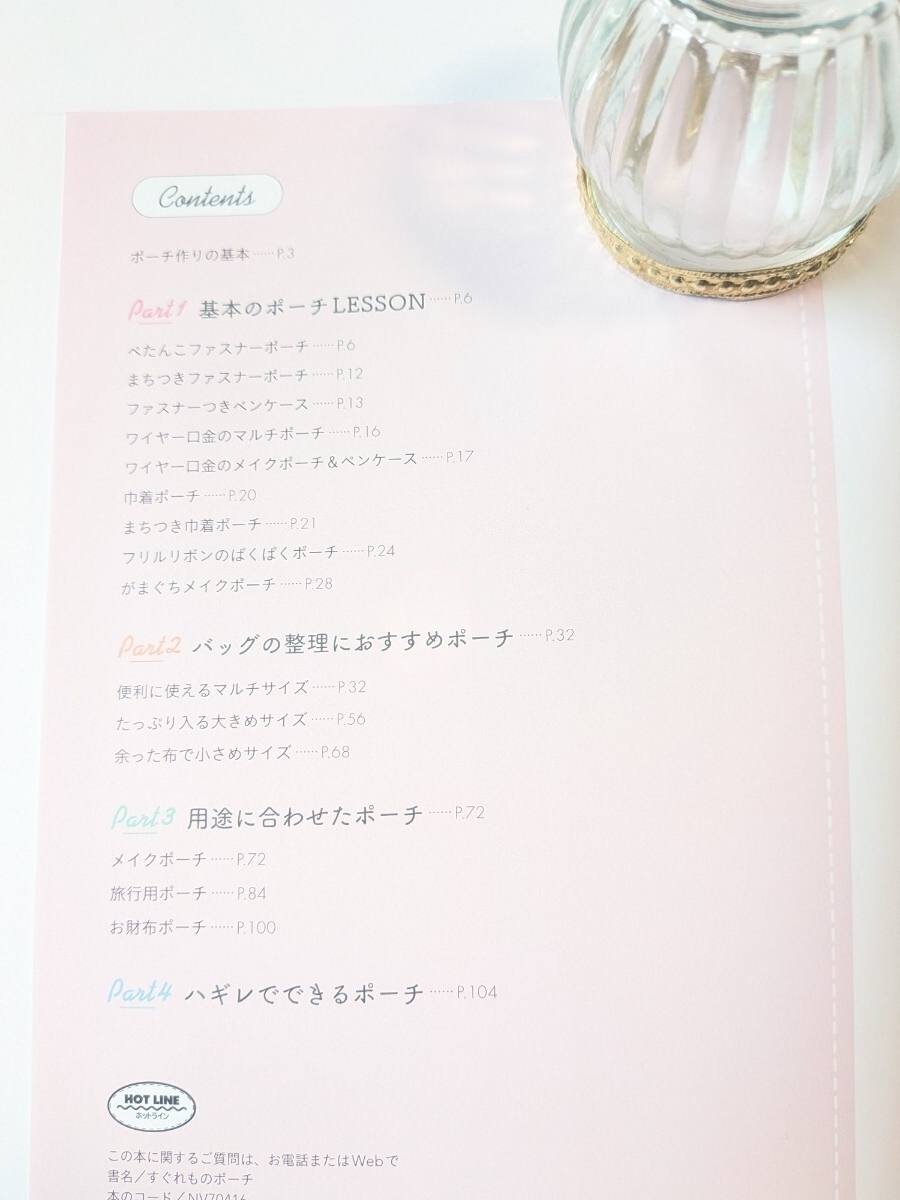 Contents
ポーチ作りの基本……P.3
Part1 基本のポーチLESSON……P.6
ぺたんこファスナーポーチ……P.6
まちつきファスナーポーチ……P.12
ファスナーつきペンケース……P.13
ワイヤー口金のマルチポーチ……P.16
ワイヤー口金のメイクポーチ＆ペンケース……P.17
巾着ポーチ……P.20
まちつき巾着ポーチ……P.21
フリルリボンのぱくぱくポーチ……P.24
がまぐちメイクポーチ……P.28
Part2 バッグの整理におすすめポーチ……P.32
便利に使えるマルチサイズ……P.32
たっぷり入る大きめサイズ……P.56
余った布で小さめサイズ……P.68
Part3 用途に合わせたポーチ……P.72
メイクポーチ……P.72
旅行用ポーチ……P.84
お財布ポーチ……P.100
Part4 ハギレでできるポーチ……P.104
HOT LINE
ホットライン
この本に関するご質問は、お電話またはWebで
書名／すぐれものポーチ
本のコード／NV70416